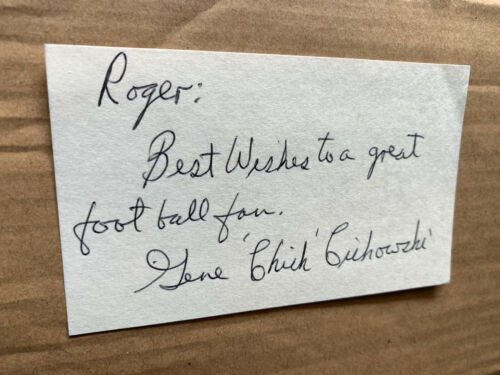 Roger:
Best Wishes to a great
football fan.
Gene 'Chick' Cichowski